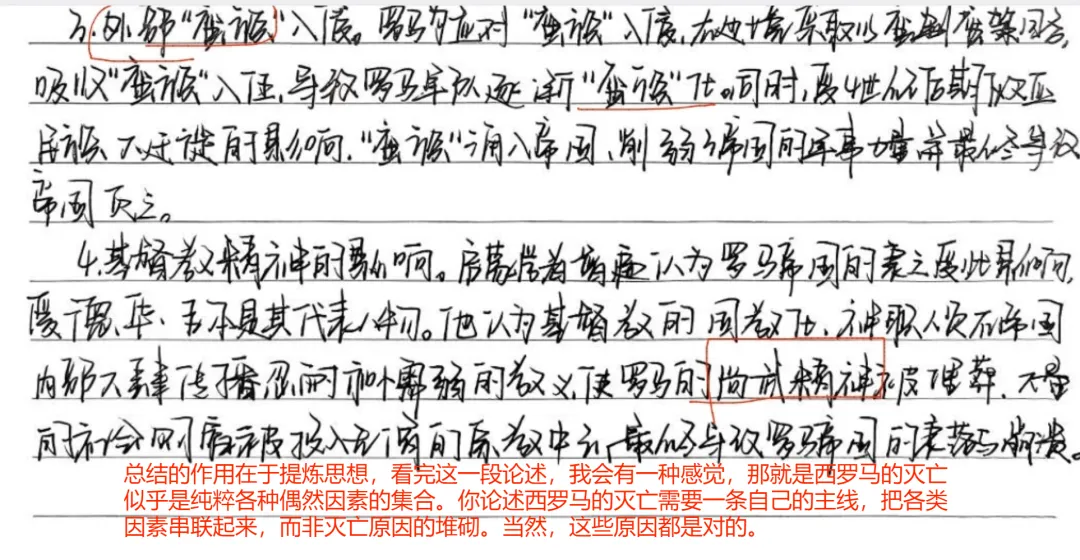 3.外部"蛮族"入侵。罗马为应对"蛮族"入侵,在边境采取以蛮制蛮策略,
吸收"蛮族"入伍,导致罗马军队逐渐"蛮族"化。同时,受4世纪后期欧亚
民族大迁徙的影响,"蛮族"涌入帝国,削弱帝国的军事力量并最终导致
帝国灭亡。
4.基督教精神的影响。启蒙学者普遍认为罗马帝国的衰亡受此影响,
爱德华·吉本是其代表人物。他认为基督教的国教化,神职人员在帝国
内部大肆传播忍耐和懦弱的教义,使罗马的尚武精神被埋葬,大量
的社会财富被投入无用的宗教中去,最终导致罗马帝国的衰落与崩溃。
总结的作用在于提炼思想,看完这一段论述,我会有一种感觉,那就是西罗马的灭亡
似乎是纯粹各种偶然因素的集合。你论述西罗马的灭亡需要一条自己的主线,把各类
因素串联起来,而非灭亡原因的堆砌。当然,这些原因都是对的。